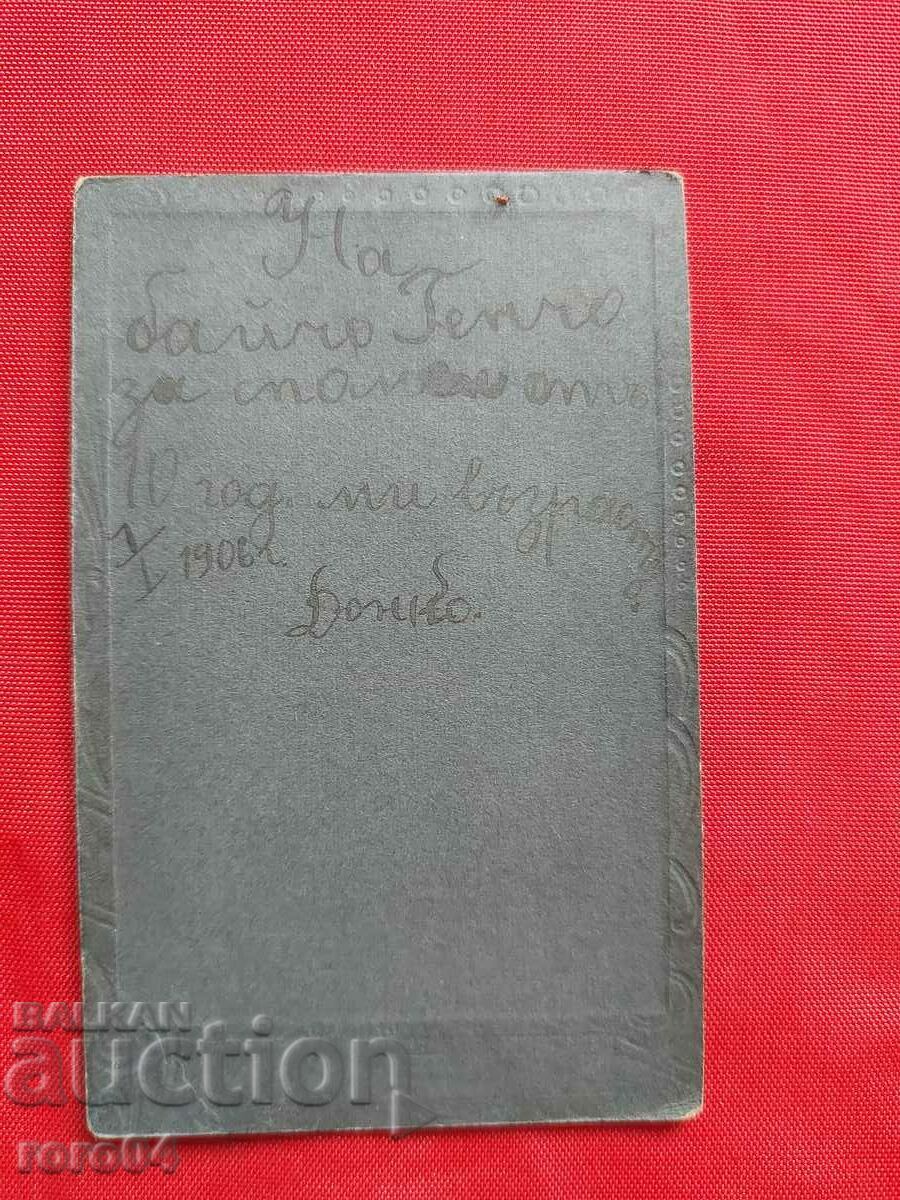 На
байчо Генчо
за спомен отъ
10 год. ми възрасть
1/I 1906 г.
Донко.
BALKAN
auction
roro04